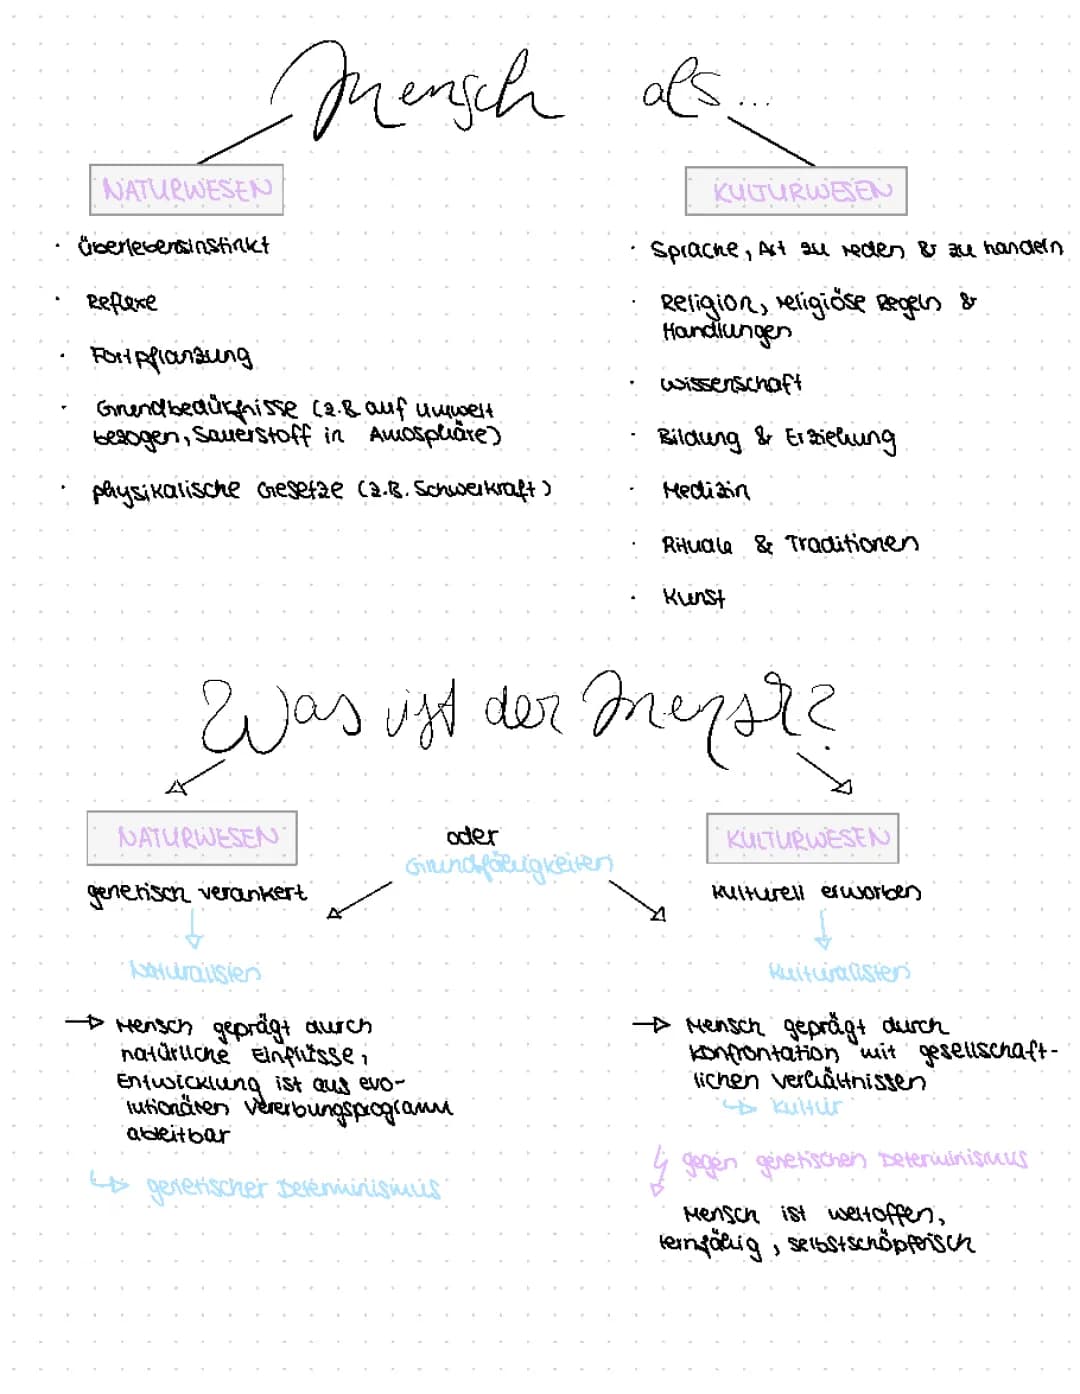 Mensch als...
NATURWESEN
· Überlebensinstinkt
· Reflexe
· Fortpflanzung
· Grundbedürfnisse (z.B. auf Umwelt
bezogen, Sauerstoff in Atmosphäre)
· physikalische Gesetze (z.B. Schwerkraft)
KULTURWESEN
· Sprache, Art zu reden & zu handeln
· Religion, religiöse Regeln &
Handlungen
· Wissenschaft
· Bildung & Erziehung
· Medizin
· Rituale & Traditionen
· Kunst
Was ist der Mensch?
NATURWESEN
genetisch verankert
↓
Naturalisten
→ Mensch geprägt durch
natürliche Einflüsse,
Entwicklung ist aus evo-
lutionären Vererbungsprogramm
ableitbar
↳ genetischer Determinismus
oder
Grundfähigkeiten
KULTURWESEN
kulturell erworben
↓
Kulturalisten
→ Mensch geprägt durch
Konfrontation mit gesellschaft-
lichen Verhältnissen
↳ Kultur
gegen genetischen Determinismus
Mensch ist weltoffen,
lernfähig, selbstschöpferisch